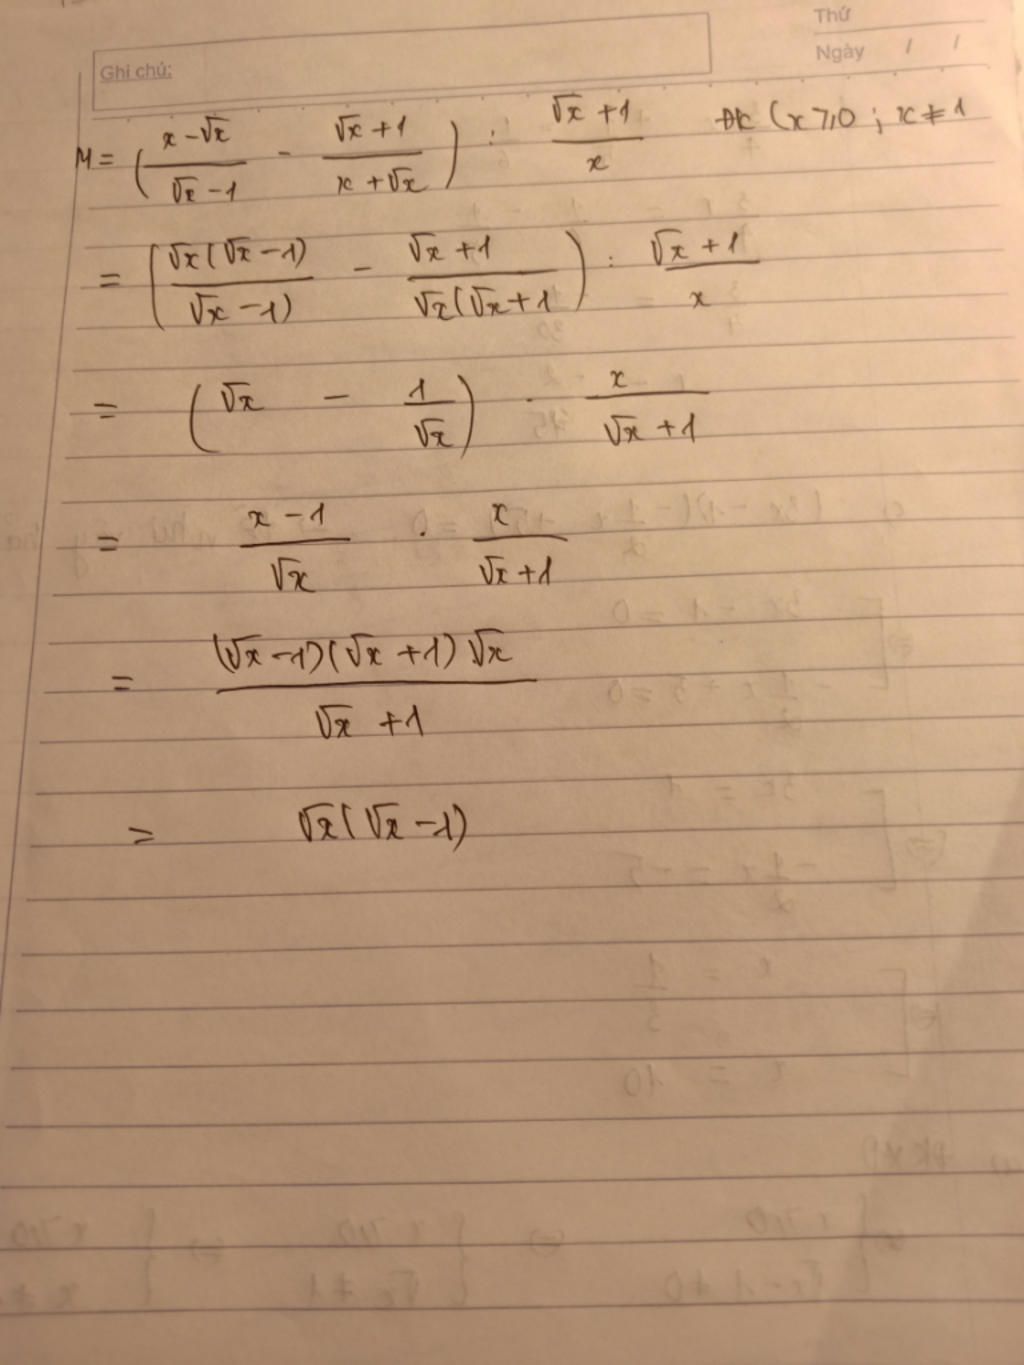 Thứ
Ghi chú:
Ngày / /
M = (x - √x / √x - 1 - √x + 1 / x + √x) : √x + 1 / x ĐK (x ⩾ 0 ; x ≠ 1
= (√x(√x - 1) / √x - 1) - √x + 1 / √x(√x + 1) : √x + 1 / x
= (√x - 1 / √x) . x / √x + 1
= x - 1 / √x . x / √x + 1
= (√x - 1)(√x + 1) √x / √x + 1
= √x(√x - 1)